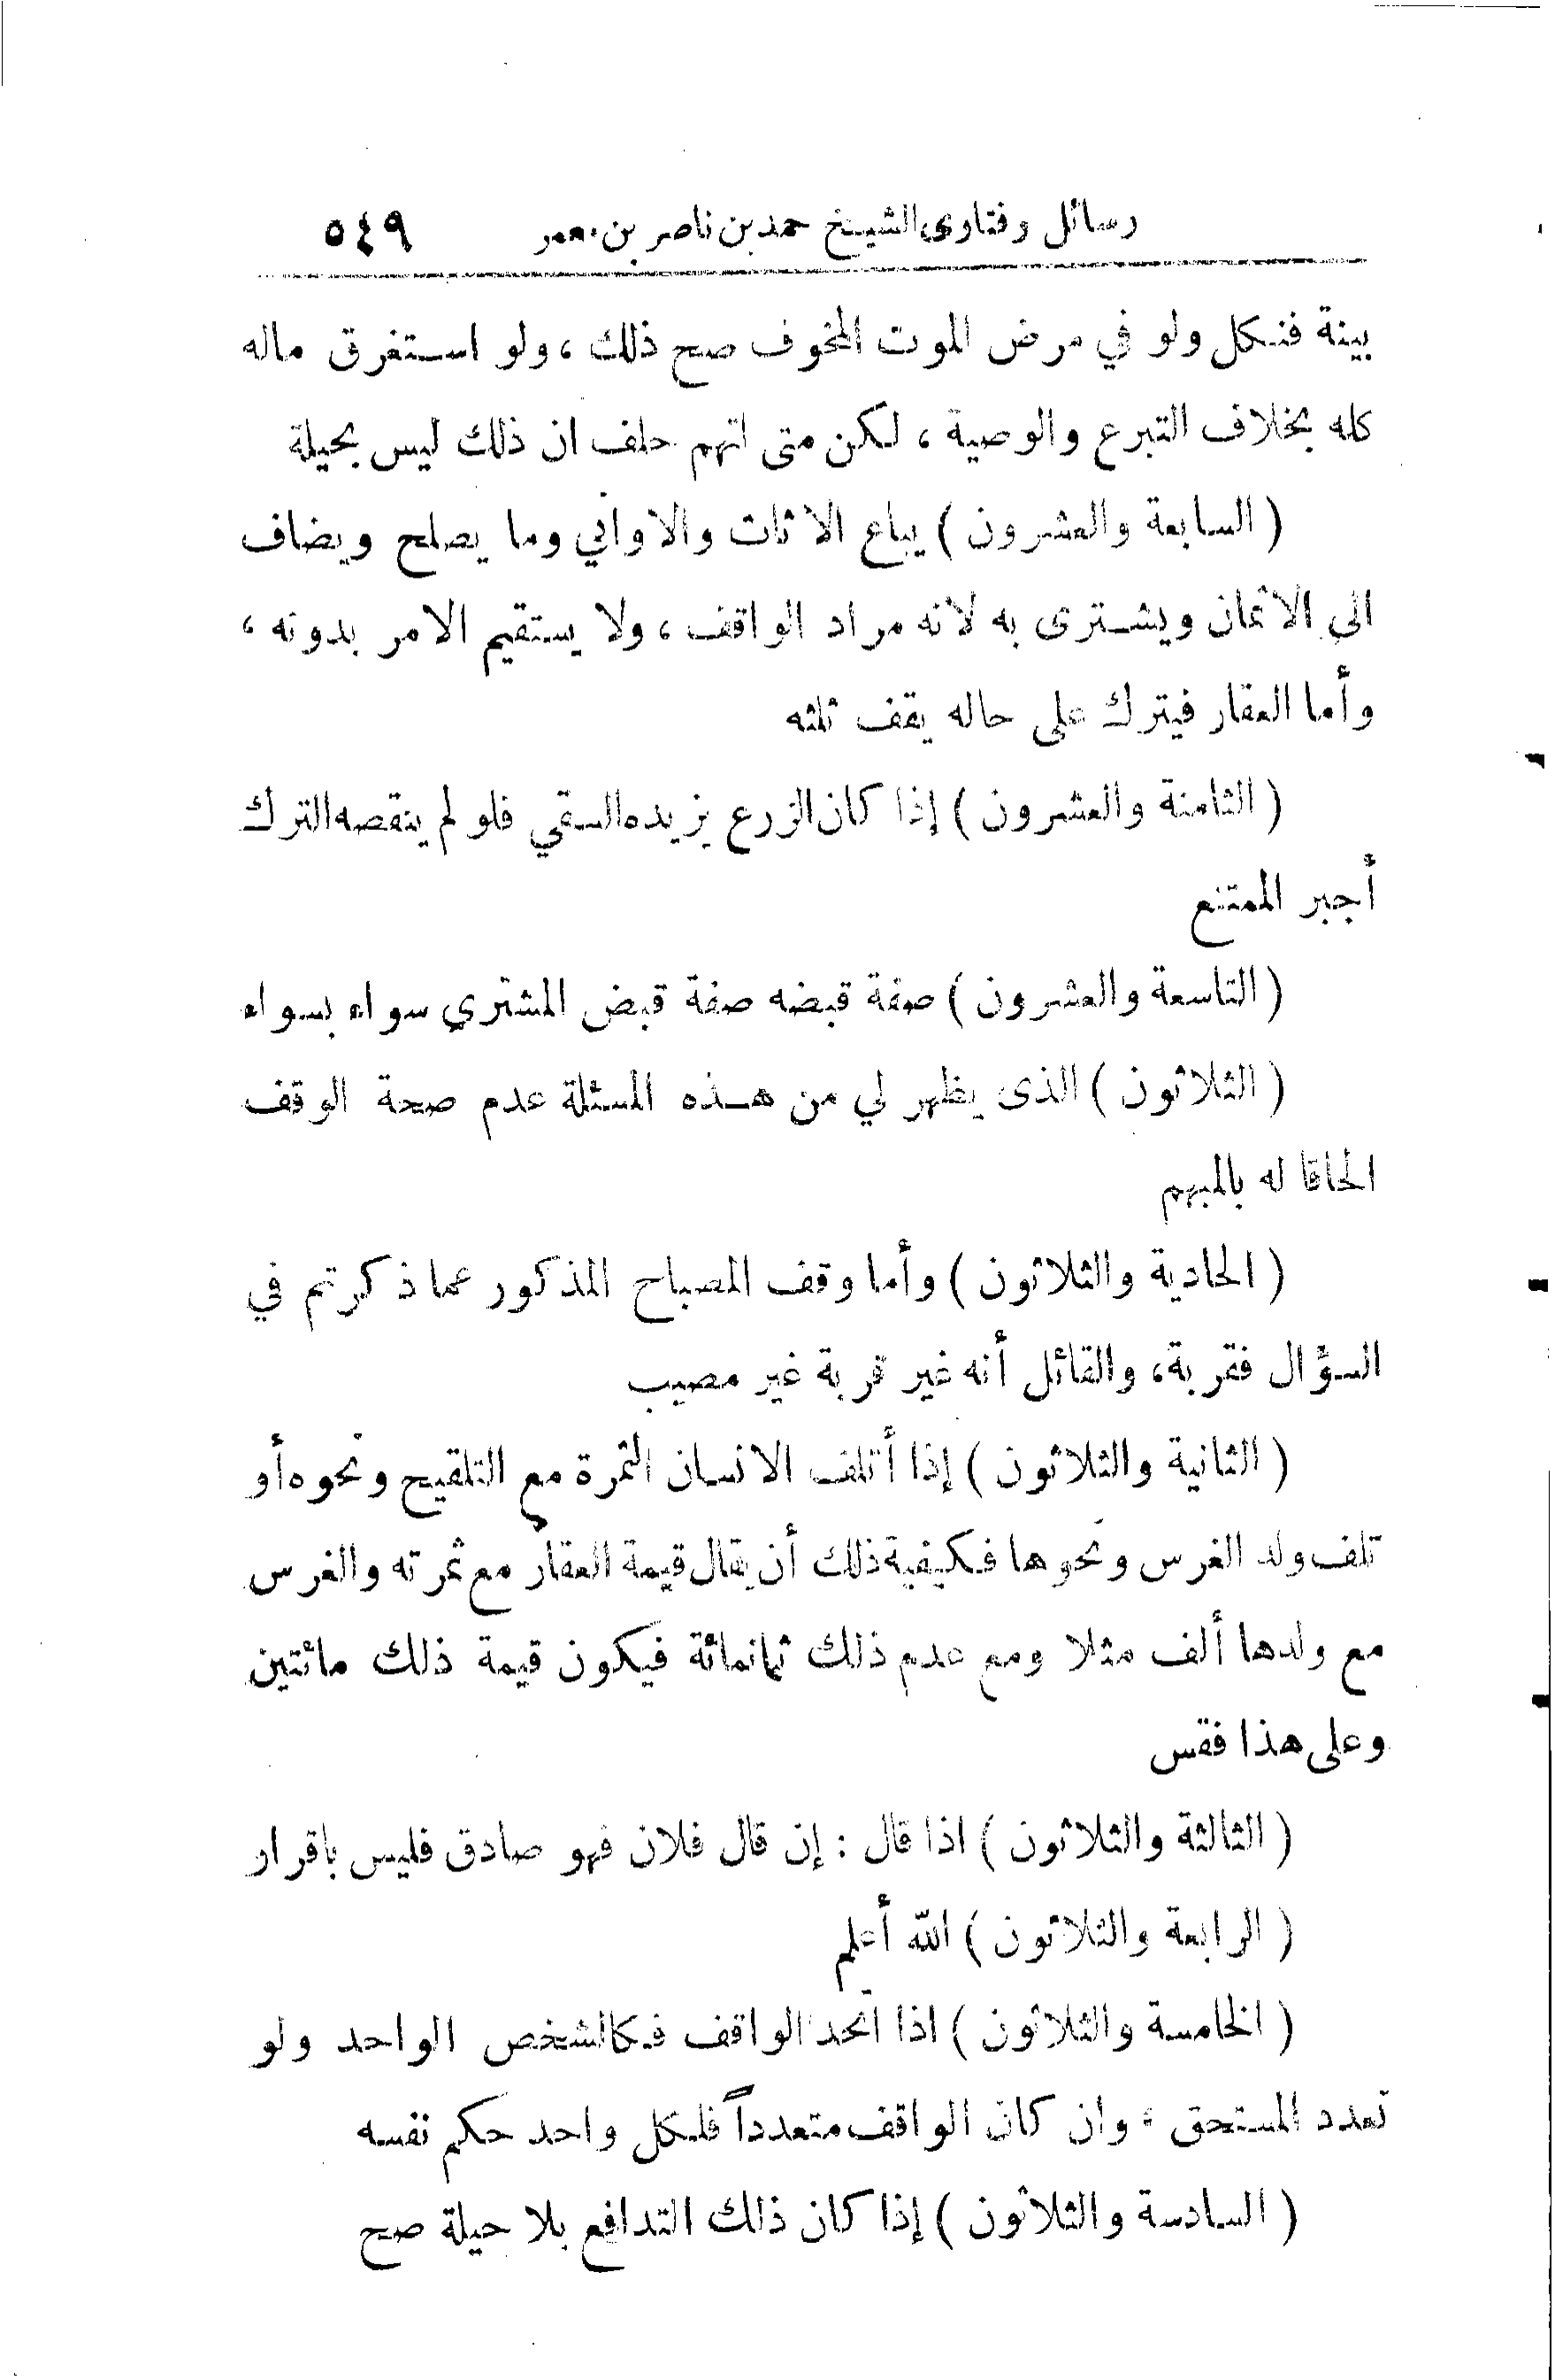 رسائل وفتاوى الشيخ حمد بن ناصر بن معمر ٥٤٩
بينة فنكل ولو في مرض الموت المخوف صح ذلك، ولو استغرق ماله
كله بخلاف التبرع والوصية، لكن متى اتهم حلف ان ذلك ليس بحيلة
(السابعة والعشرون) يباع الاثاث والاواني وما يصلح ويضاف
الى الاثمان ويشترى به لانه مراد الواقف، ولا يستقيم الامر بدونه،
وأما العقار فيترك على حاله يقف ثلثه
(الثامنة والعشرون) إذا كان الزرع يزيده السقي فلو لم ينقصه الترك
أجبر الممتنع
(التاسعة والعشرون) صفة قبضه صفة قبض المشتري سواء بسواء
(الثلاثون) الذى يظهر لي من هذه المسئلة عدم صحة الوقف
الحاقا له بالمبهم
(الحادية والثلاثون) وأما وقف المصباح المذكور عما ذكرتم في
السؤال فقربة، والقائل أنه غير قربة غير مصيب
(الثانية والثلاثون) إذا أتلف الانسان الثمرة مع التلقيح ونحوه أو
تلف ولد الغرس ونحوها فكيفية ذلك أن يقال قيمة العقار مع ثمرته والغرس
مع ولدها ألف مثلا ومع عدم ذلك ثمانمائة فيكون قيمة ذلك مائتين
وعلى هذا فقس
(الثالثة والثلاثون) اذا قال : إن قال فلان فهو صادق فليس باقرار
(الرابعة والثلاثون) الله أعلم
(الخامسة والثلاثون) اذا اتحد الواقف فكالشخص الواحد ولو
تعدد المستحق، وان كان الواقف متعدداً فلكل واحد حكم نفسه
(السادسة والثلاثون) إذا كان ذلك التدافع بلا حيلة صح